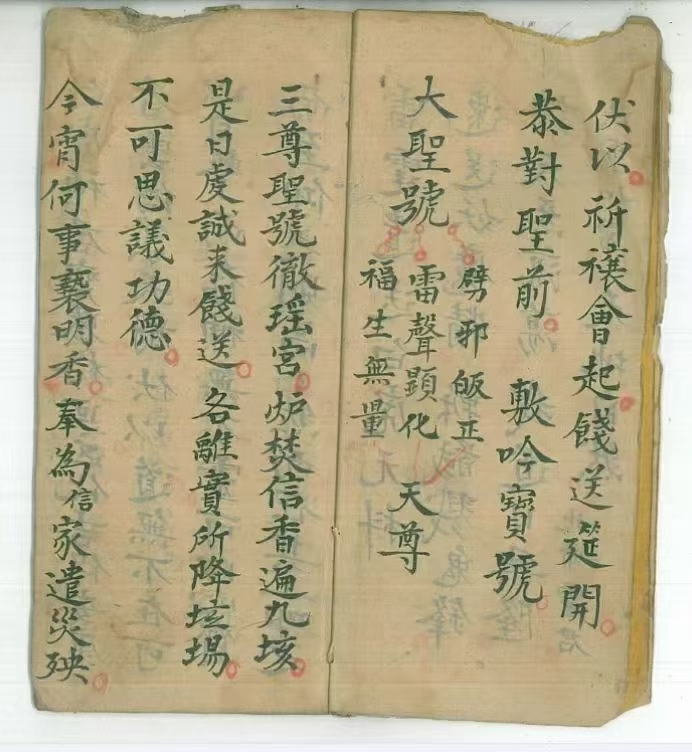 伏以祈禳會起餞送筵開
恭對聖前 敷吟寶號
大聖號
劈邪皈正
雷聲顯化 天尊
福生無量
三尊聖號徹瑶宮炉焚信香遍九垓
是日虔誠来餞送各離寳所降坛場
不可思議功德
今宵何事爇明香奉為信家遣災殃